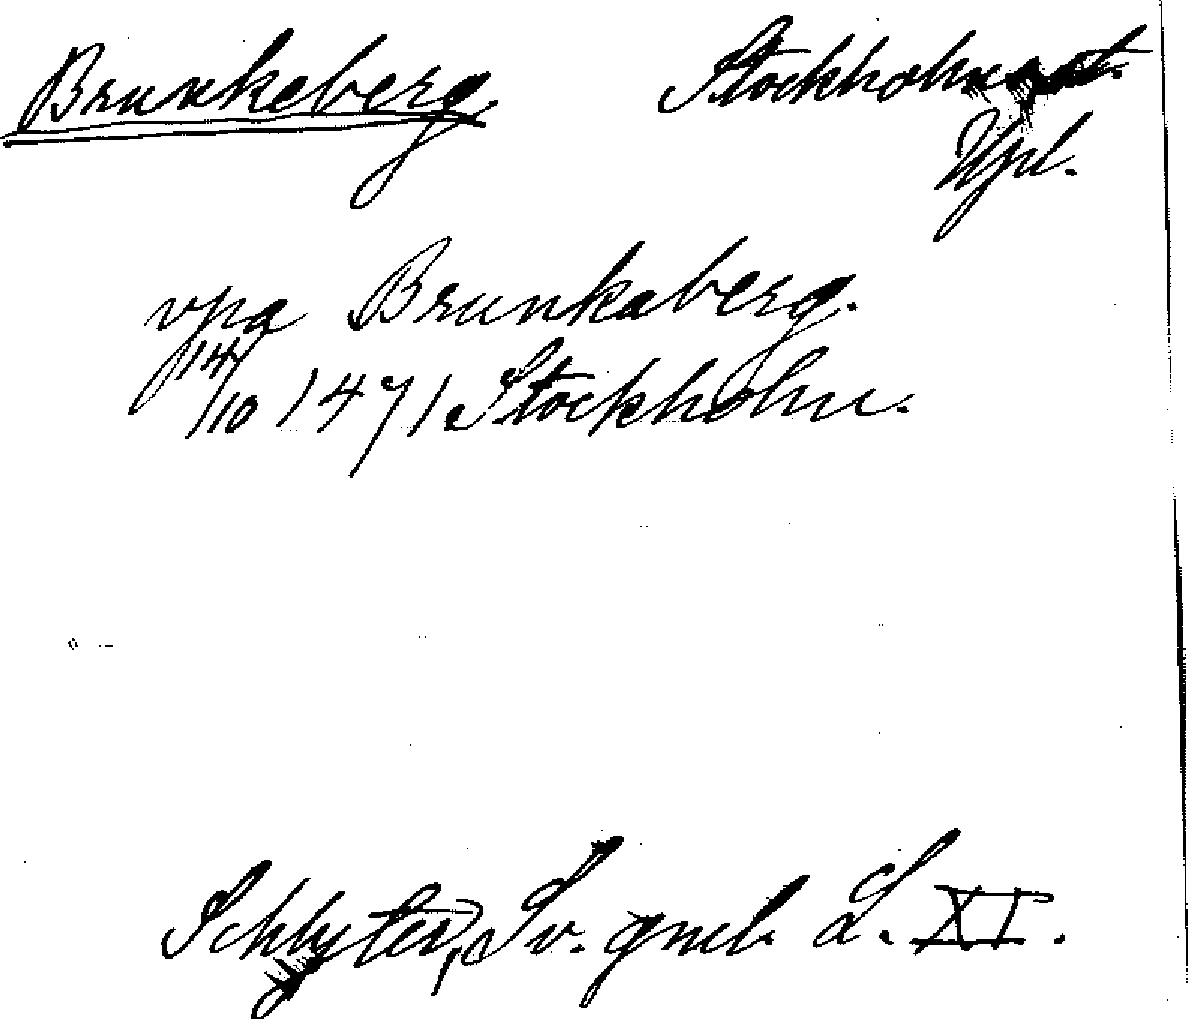 Brunkeberg Stockholm
Upl.
vpa Brunkaberg.
14/10 1471 Stockholm.
Schlyter, Sv. gml. L. XI.